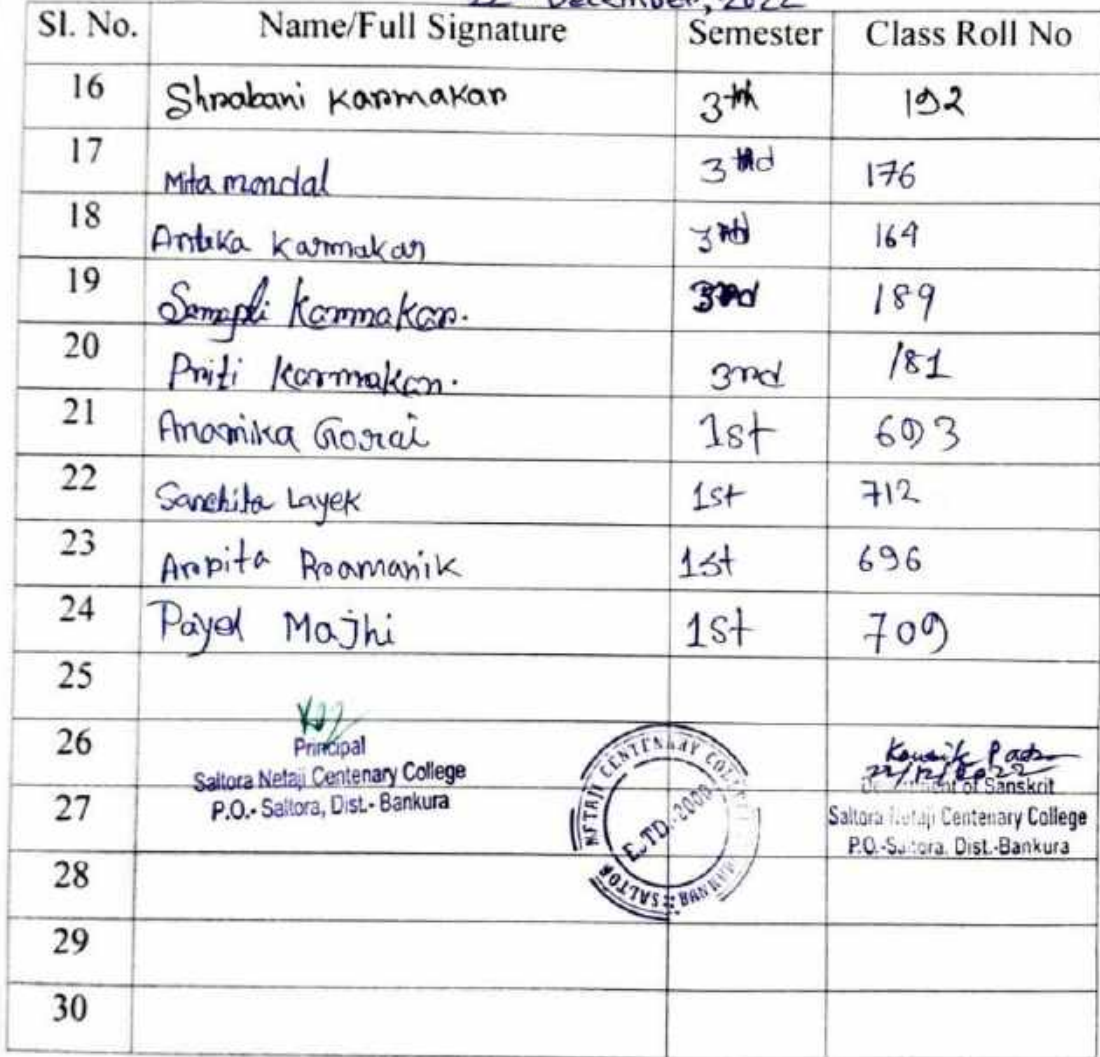 22 December, 2022
Sl. No. Name/Full Signature Semester Class Roll No
16 Shrabani Karmakar 3th 192
17 Mita mondal 3rd 176
18 Antika Karmakar 3rd 164
19 Karmakar. 3rd 189
20 Priti Karmakar. 3rd 181
21 Anamika Gorai 1st 693
22 Sanchita Layek 1st 712
23 Arpita Pramanik 1st 696
24 Payel Majhi 1st 709
25
26
Principal
Saltora Netaji Centenary College
P.O.- Saltora, Dist.- Bankura
NETAJI CENTENARY COLLEGE
ESTD-2000
SALTORA BANKURA
Kousik Patra
22/12/2022
Department of Sanskrit
Saltora Netaji Centenary College
P.O.-Saltora, Dist.-Bankura
27
28
29
30